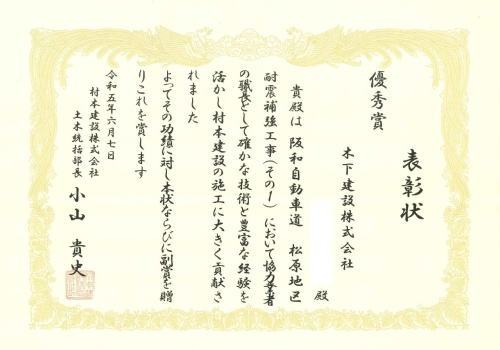 表彰状
優秀賞
木下建設株式会社
殿
貴殿は 阪和自動車道 松原地区
耐震補強工事(その1)において協力業者
の職長として確かな技術と豊富な経験を
活かし村本建設の施工に大きく貢献さ
れました
よってその功績に対し本状ならびに副賞を贈
りこれを賞します
令和五年六月七日
村本建設株式会社
土木統括部長 小山 貴史